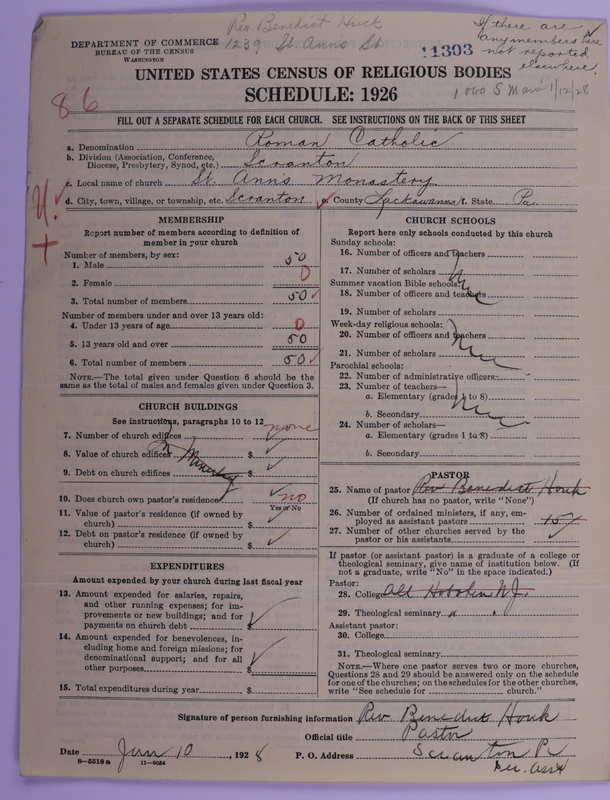 Rev. Benedict Huck
1239 St. Ann's St.
If there are
any members here
not reported
elsewhere.
DEPARTMENT OF COMMERCE
BUREAU OF THE CENSUS
WASHINGTON
11303
UNITED STATES CENSUS OF RELIGIOUS BODIES
SCHEDULE: 1926
1000 S Main 1/12/28
86
FILL OUT A SEPARATE SCHEDULE FOR EACH CHURCH. SEE INSTRUCTIONS ON THE BACK OF THIS SHEET
a. Denomination Roman Catholic
b. Division (Association, Conference, Diocese, Presbytery, Synod, etc.) Scranton
c. Local name of church St. Ann's Monastery
d. City, town, village, or township, etc. Scranton e. County Lackawanna f. State Pa.
MEMBERSHIP
Report number of members according to definition of
member in your church
Number of members, by sex:
1. Male 50
2. Female 0
3. Total number of members 50
Number of members under and over 13 years old:
4. Under 13 years of age 0
5. 13 years old and over 50
6. Total number of members 50
NOTE.—The total given under Question 6 should be the
same as the total of males and females given under Question 3.
CHURCH BUILDINGS
See instructions, paragraphs 10 to 12
7. Number of church edifices none
8. Value of church edifices $
9. Debt on church edifices $
10. Does church own pastor's residence? no
Yes or No
11. Value of pastor's residence (if owned by
church) $
12. Debt on pastor's residence (if owned by
church) $
EXPENDITURES
Amount expended by your church during last fiscal year
13. Amount expended for salaries, repairs,
and other running expenses; for im-
provements or new buildings; and for
payments on church debt $
14. Amount expended for benevolences, in-
cluding home and foreign missions; for
denominational support; and for all
other purposes $
15. Total expenditures during year $
CHURCH SCHOOLS
Report here only schools conducted by this church
Sunday schools:
16. Number of officers and teachers
17. Number of scholars
Summer vacation Bible schools:
18. Number of officers and teachers
19. Number of scholars
Week-day religious schools:
20. Number of officers and teachers
21. Number of scholars
Parochial schools:
22. Number of administrative officers
23. Number of teachers—
a. Elementary (grades 1 to 8)
b. Secondary
24. Number of scholars—
a. Elementary (grades 1 to 8)
b. Secondary
PASTOR
25. Name of pastor Rev. Benedict Houk
(If church has no pastor, write "None")
26. Number of ordained ministers, if any, em-
ployed as assistant pastors 15
27. Number of other churches served by the
pastor or his assistants
If pastor (or assistant pastor) is a graduate of a college or
theological seminary, give name of institution below. (If
not a graduate, write "No" in the space indicated.)
Pastor:
28. College all Hoboken N.J.
29. Theological seminary " "
Assistant pastor:
30. College
31. Theological seminary
NOTE.—Where one pastor serves two or more churches,
Questions 28 and 29 should be answered only on the schedule
for one of the churches; on the schedules for the other churches,
write "See schedule for church."
Signature of person furnishing information Rev. Benedict Houk
Official title Pastor
Date Jan 10, 1928 P. O. Address Scranton Pa
8—5518a 11—9034